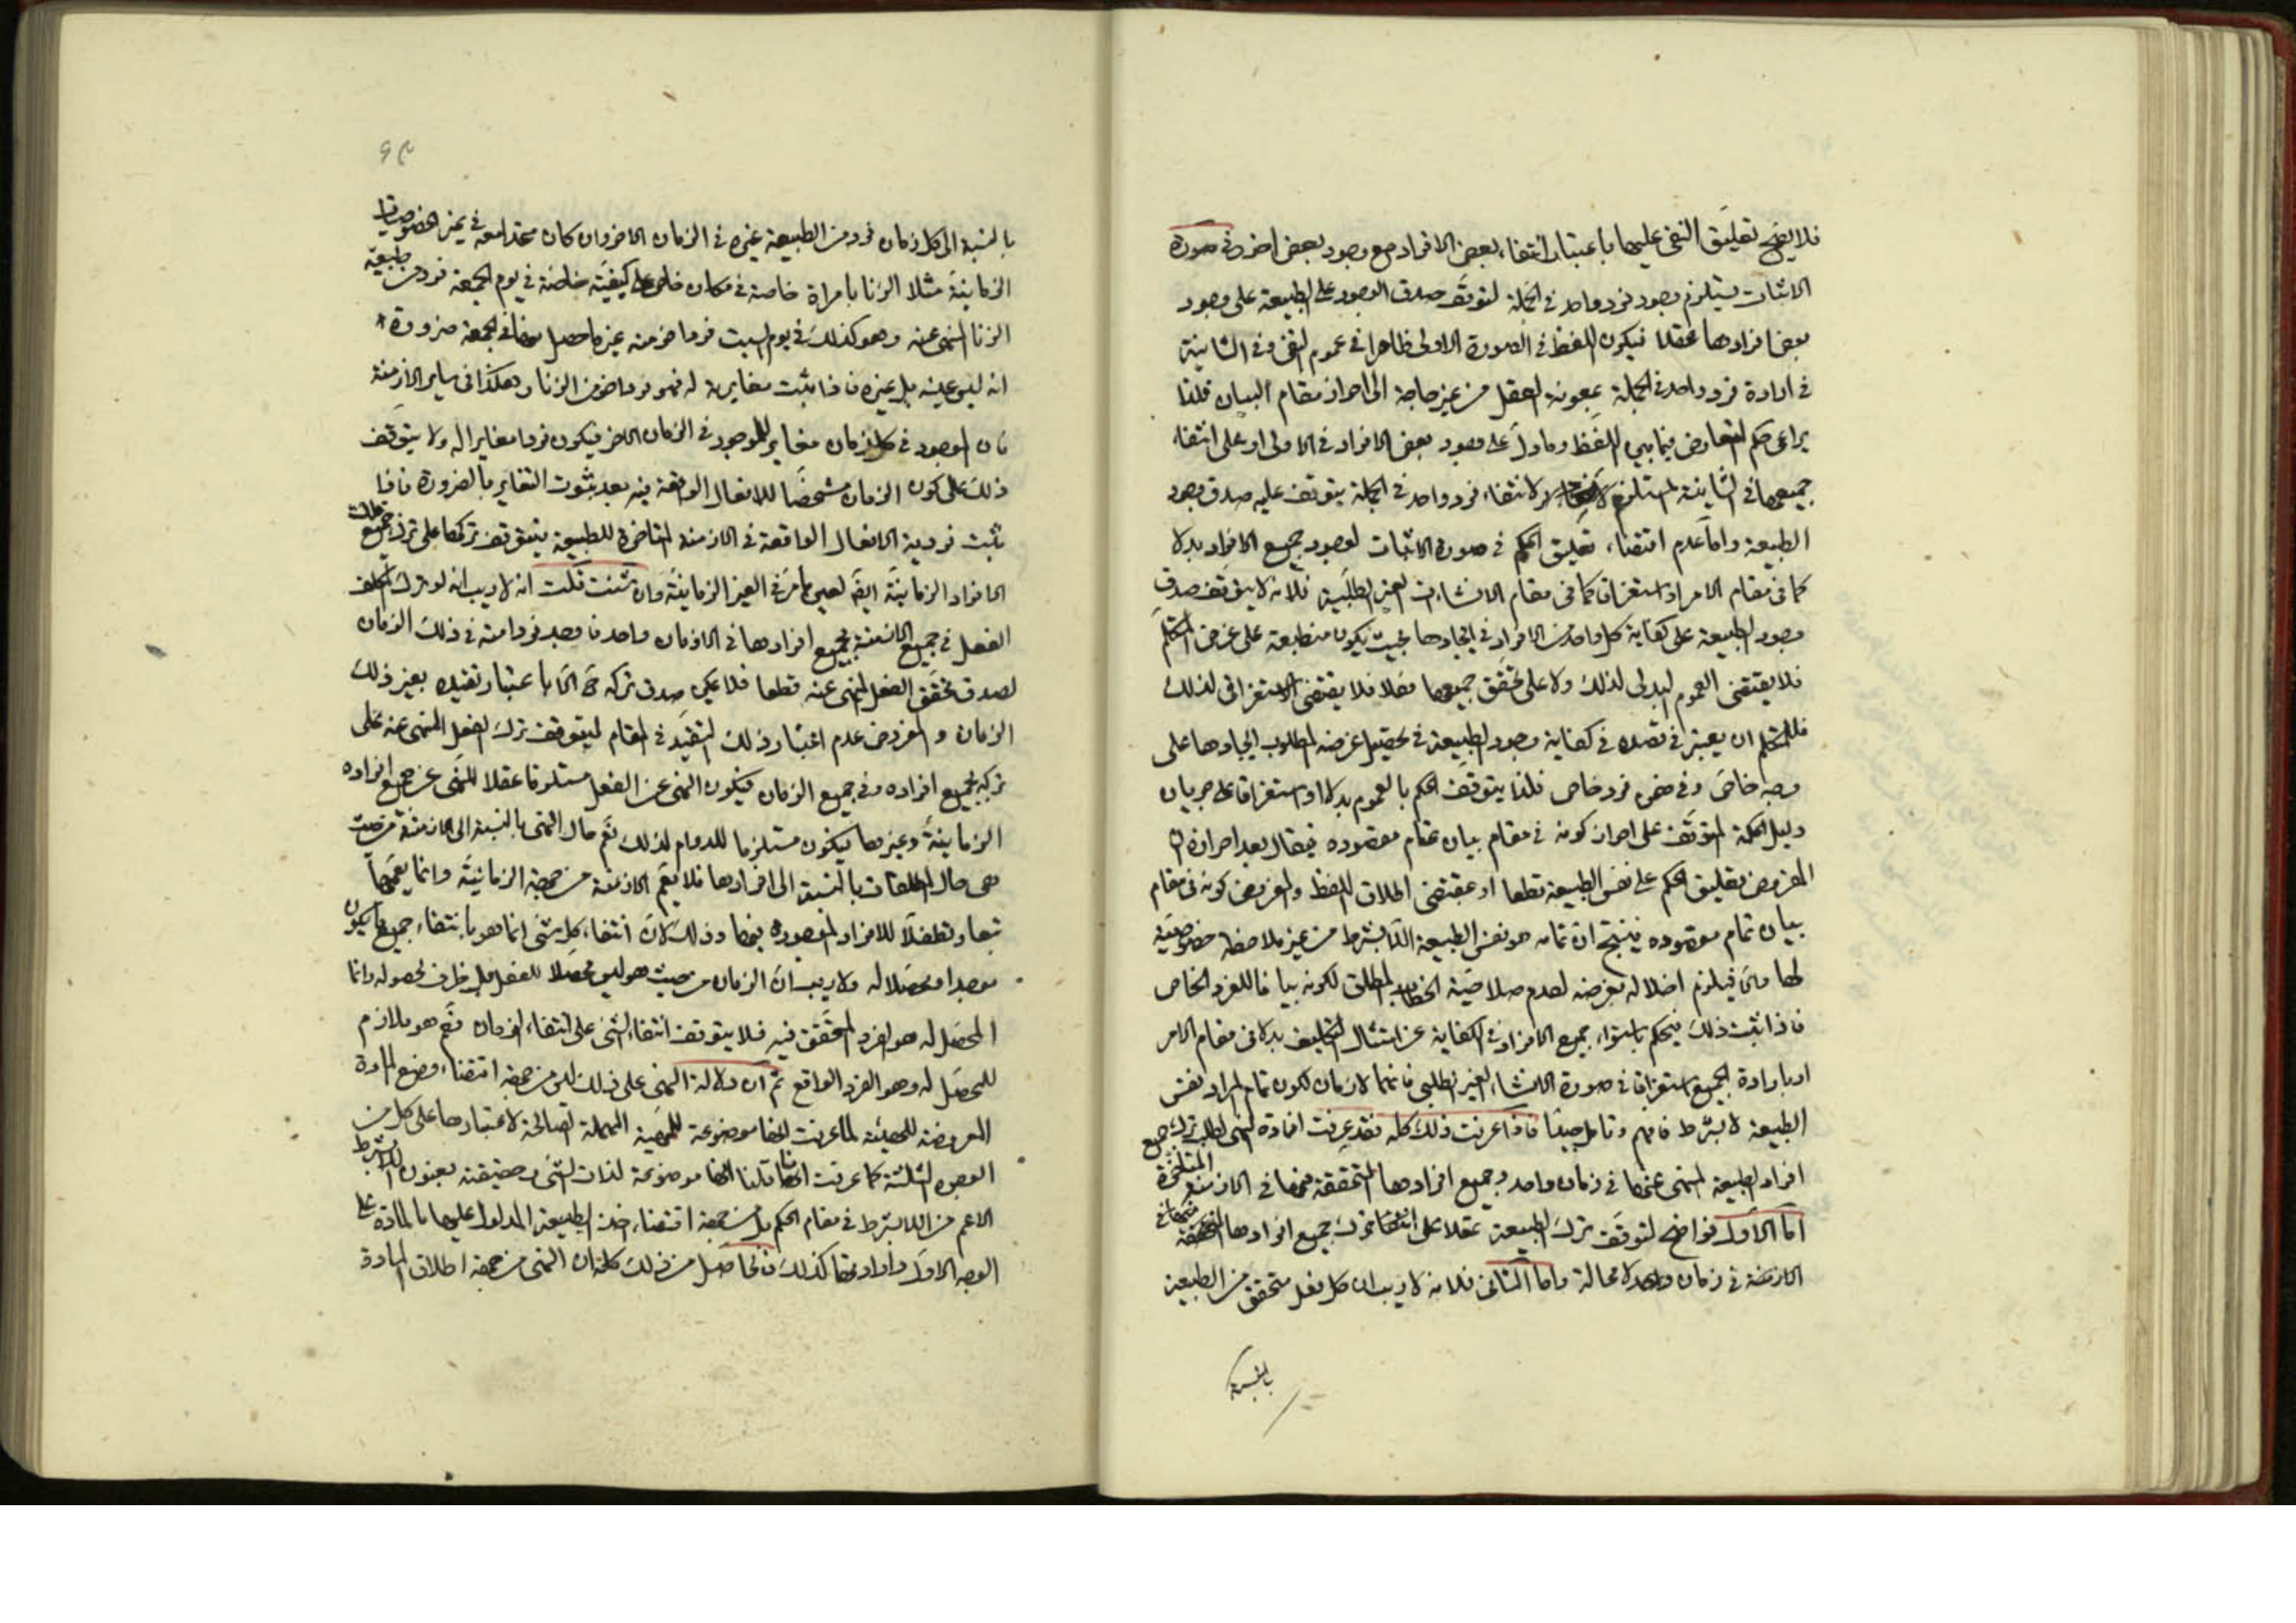 فلا يصح تعليق النفى عليها باعتبار انتفاء بعض الافراد مع وجود بعض اخر وفى صورة
الاثبات يستلزم وجود فرد واحد فى الجملة لتوقف صدق الوجود على الطبيعة على وجود
بعض افرادها عقلا فيكون اللفظ فى الصورة الاولى ظاهرا فى عموم النفى وفى الثانية
فى ارادة فرد واحد فى الجملة بمعونة العقل من غير حاجة الى احراز مقام البيان فلذا
يراعى حكم التعارض فيما بين اللفظ وما دل على وجود بعض الافراد فى الاولى او على انتفاء
جميعها فى الثانية المستلزم لانتفاء فرد واحد فى الجملة يتوقف عليه صدق وجود
الطبيعة واما عدم اقتضاء تعليق الحكم فى صورة الاثبات لوجود جميع الافراد بدلا
كما فى مقام الامر او استغراقا كما فى مقام الانشاءات الغير الطلبية فلانه لا يتوقف صدق
وجود الطبيعة على كفاية كل واحد من الافراد فى ايجادها بحيث يكون منطبعة على غرض المتكلم
فلا يقتضى العموم البدلى لذلك ولا على تحقق جميعها فعلا فلا يقتضى الاستغراقى لذلك
فللمتكلم ان يعتبر فى قصده فى كفاية وجود الطبيعة فى تحصيل غرضه المطلوب ايجادها على
وجه خاص وفى ضمن فرد خاص فلذا يتوقف الحكم بالعموم بدلا او استغراقا على جريان
دليل الحكمة المتوقف على احراز كونه فى مقام بيان تمام مقصوده فيقال بعد احرازه ان
المفروض تعليق الحكم على نفس الطبيعة قطعا او بمقتضى اطلاق اللفظ والمفروض كونه فى مقام
بيان تمام مقصوده فينتج ان تمامه هو نفس الطبيعة اللابشرط من غير ملاحظة خصوصية
لها والا فيلزم اخلاله بغرضه لعدم صلاحية الخطاب المطلق لكونه بيانا للفرد الخاص
فاذا ثبت ذلك فيحكم باستواء جميع الافراد فى الكفاية عن امتثال التكليف بدلا فى مقام الامر
او بارادة الجميع استغراقا فى صورة الانشاء الغير الطلبى فانهما لازمان لكون تمام المراد نفس
الطبيعة لا بشرط فافهم وتامل جيدا فاذا عرفت ذلك كله فقد عرفت افادة النهى لطلب ترك جميع
افراد الطبيعة المنهى عنها فى زمان واحد وجميع افرادها المتحققة منها فى الازمنة المتاخرة
اما الاول فواضح لتوقف ترك الطبيعة عقلا على ترك جميع افرادها المتحققة منها فى
الازمنة فى زمان واحد لا محالة واما الثانى فلانه لا ريب ان كل فعل متحقق من الطبيعة
بالنسبة
بالنسبة الى كل زمان فرد من الطبيعة غيره فى الزمان الاخر وان كان متحدا معه فى غير الخصوصيات
الزمانية مثلا الزنا بامراة خاصة فى مكان خاص على كيفية خاصة فى يوم الجمعة فرد من طبيعة
الزنا المنهى عنه وهو كذلك فى يوم السبت فرد اخر منه غير ما حصل منها فى الجمعة ضرورة
انه ليس عينه بل غيره فاذا ثبت مغايرته له فهو فرد اخر من الزنا وهكذا فى ساير الازمنة
فان الموجود فى كل زمان مغاير للموجود فى الزمان الاخر فيكون فردا مغايرا له ولا يتوقف
ذلك على كون الزمان مشخصا للافعال الواقعة فيه بعد ثبوت التغاير بالضرورة فاذا
ثبت فردية الافعال الواقعة فى الازمنة المتاخرة للطبيعة فيتوقف تركها على ترك جميع تلك
الافراد الزمانية ايضا لعين ما مر فى الغير الزمانية وان شئت قلت انه لا ريب انه لو ترك المكلف
الفعل فى جميع الازمنة بجميع افرادها فى الا زمان واحد فاوجد فردا منه فى ذلك الزمان
لصدق تحقق الفعل المنهى عنه قطعا فلا يمكن صدق تركه ح الا باعتبار تقييده بغير ذلك
الزمان والمفروض عدم اعتبار ذلك التقييد فى المقام ليتوقف ترك الفعل المنهى عنه على
تركه بجميع افراده وفى جميع الزمان فيكون النهى عن الفعل مستلزما عقلا للنهى عن جميع افراده
الزمانية وغيرها فيكون مستلزما للدوام لذلك نعم حال النهى بالنسبة الى الازمنة من حيث
هى حال المطلقات بالنسبة الى افرادها فلا يعم الازمنة من جهة الزمانية وانما يعمها
تبعا وتطفلا للافراد الموجودة فيها وذلك لان انتفاء كل شئ انما هو بانتفاء جميع ما يكون
موجدا ومحصلا له ولا ريب ان الزمان من حيث هو ليس محصلا للفعل بل ظرف لحصوله وانما
المحصل له هو الفرد المتحقق فيه فلا يتوقف انتفاء الشئ على انتفاء الزمان نعم هو ملازم
للمحصل له وهو الفرد الواقع ثم ان دلالة النهى على ذلك ليس من جهة اقتضاء وضع المادة
المعروضة للهيئة لما عرفت انها موضوعة للمهية المهملة الصالحة لاعتبارها على كل من
الوجوه الثلثة كما عرفت انها قلنا انها موضوعة لذات الشئ وحقيقته بعنوان اللابشرط
الاعم من اللابشرط فى مقام الحكم بل من جهة اقتضاء اخذ الطبيعة المدلول عليها بالمادة على
الوجه الاول وارادتها كذلك فالحاصل من ذلك كله ان النهى من جهة اطلاق المادة